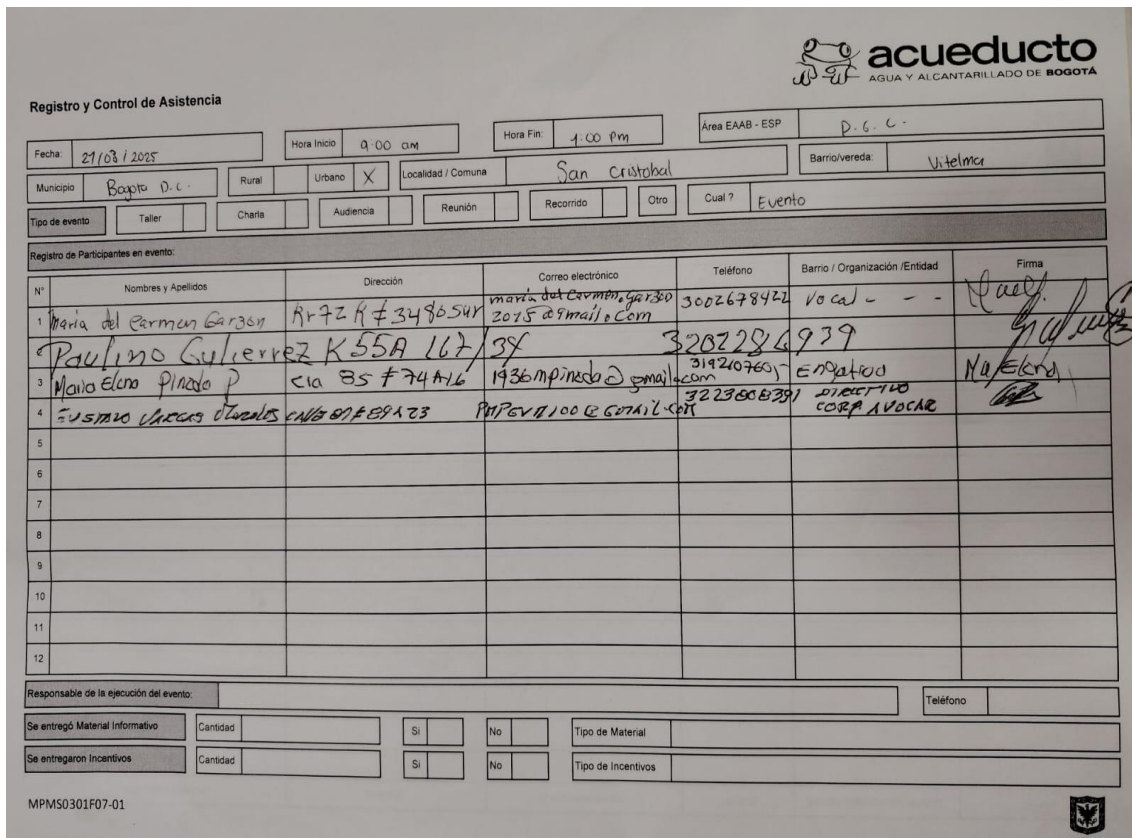 acueducto
AGUA Y ALCANTARILLADO DE BOGOTÁ
Registro y Control de Asistencia
Fecha: 21/03/2025 Hora Inicio 9:00 am Hora Fin: 1:00 Pm Área EAAB - ESP D.G.C.
Municipio Bogota D.C. Rural Urbano X Localidad / Comuna San Cristobal Barrio/vereda: Vitelma
Tipo de evento Taller Charla Audiencia Reunión Recorrido Otro Cual ? Evento
Registro de Participantes en evento:
N° Nombres y Apellidos Dirección Correo electrónico Teléfono Barrio / Organización /Entidad Firma
1 Maria del Carmen Garzon Kr 72 K # 3486 Sur maria del Carmen.garzon 3002678422 Vocal - - -
2015 @gmail.com
Paulino Gutierrez K 55A 167/34 3202286939
3 Maria Elena Pinedo P cra 85 # 74A16 1936mpineda@gmail.com Engativa Ma/Elena
4 GUSTAVO VARGAS 3223808391 DIRECTIVO
CORP AVOCAR
5
6
7
8
9
10
11
12
Responsable de la ejecución del evento: Teléfono
Se entregó Material Informativo Cantidad Si No Tipo de Material
Se entregaron Incentivos Cantidad Si No Tipo de Incentivos
MPMS0301F07-01